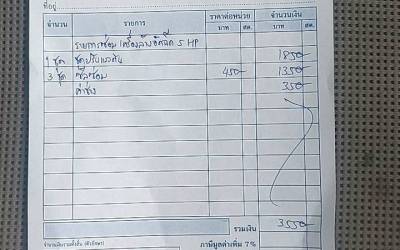 ที่อยู่
จำนวน รายการ ราคาต่อหน่วย จำนวนเงิน
บาท สต. บาท สต.
รายการซ่อม เครื่องล้างอัดฉีด 5 HP
1 ชุด ชุดปรับแรงดัน 1850
3 ชุด ซีลซ่อม 450 1350
ค่าช่าง 350
รวมเงิน 3550
จำนวนเงินรวมทั้งสิ้น (ตัวอักษร) ภาษีมูลค่าเพิ่ม 7%